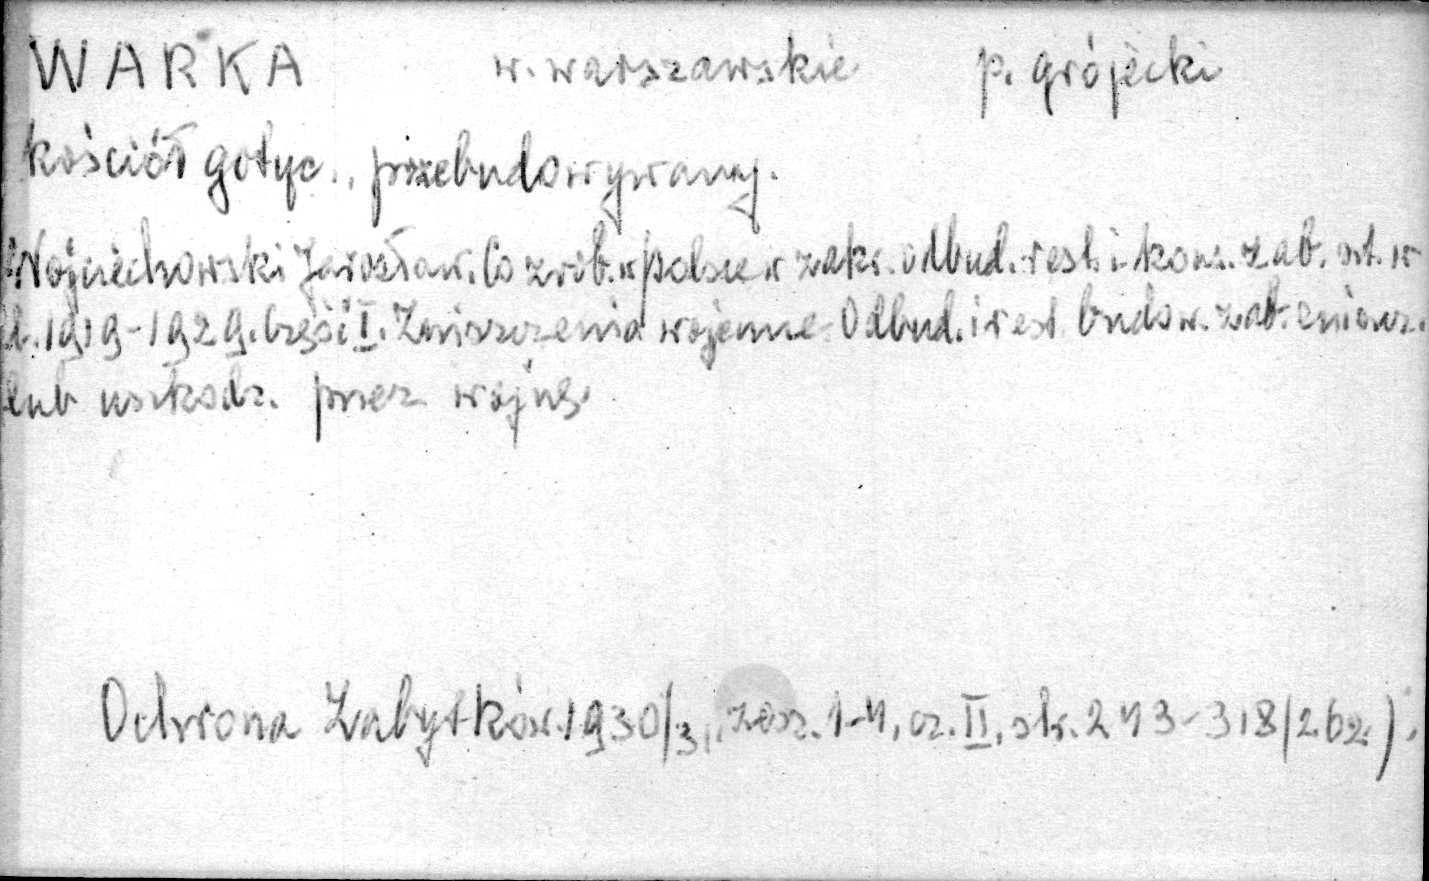 WARKA w. warszawskie p. grójecki
kościół gotyc., przebudowywany.
Wojciechowski Jarosław. Co zrob. w Polsce w zakr. odbud. rest. i kons. zab. szt. w
d. 1919-1929. Część I. Zniszczenia wojenne. Odbud. i rest. budow. zab. zniszcz.
lub uszkodz. przez wojnę.
Ochrona Zabytków. 1930/3, zesz. 1-4, cz. II, str. 243-318/262).